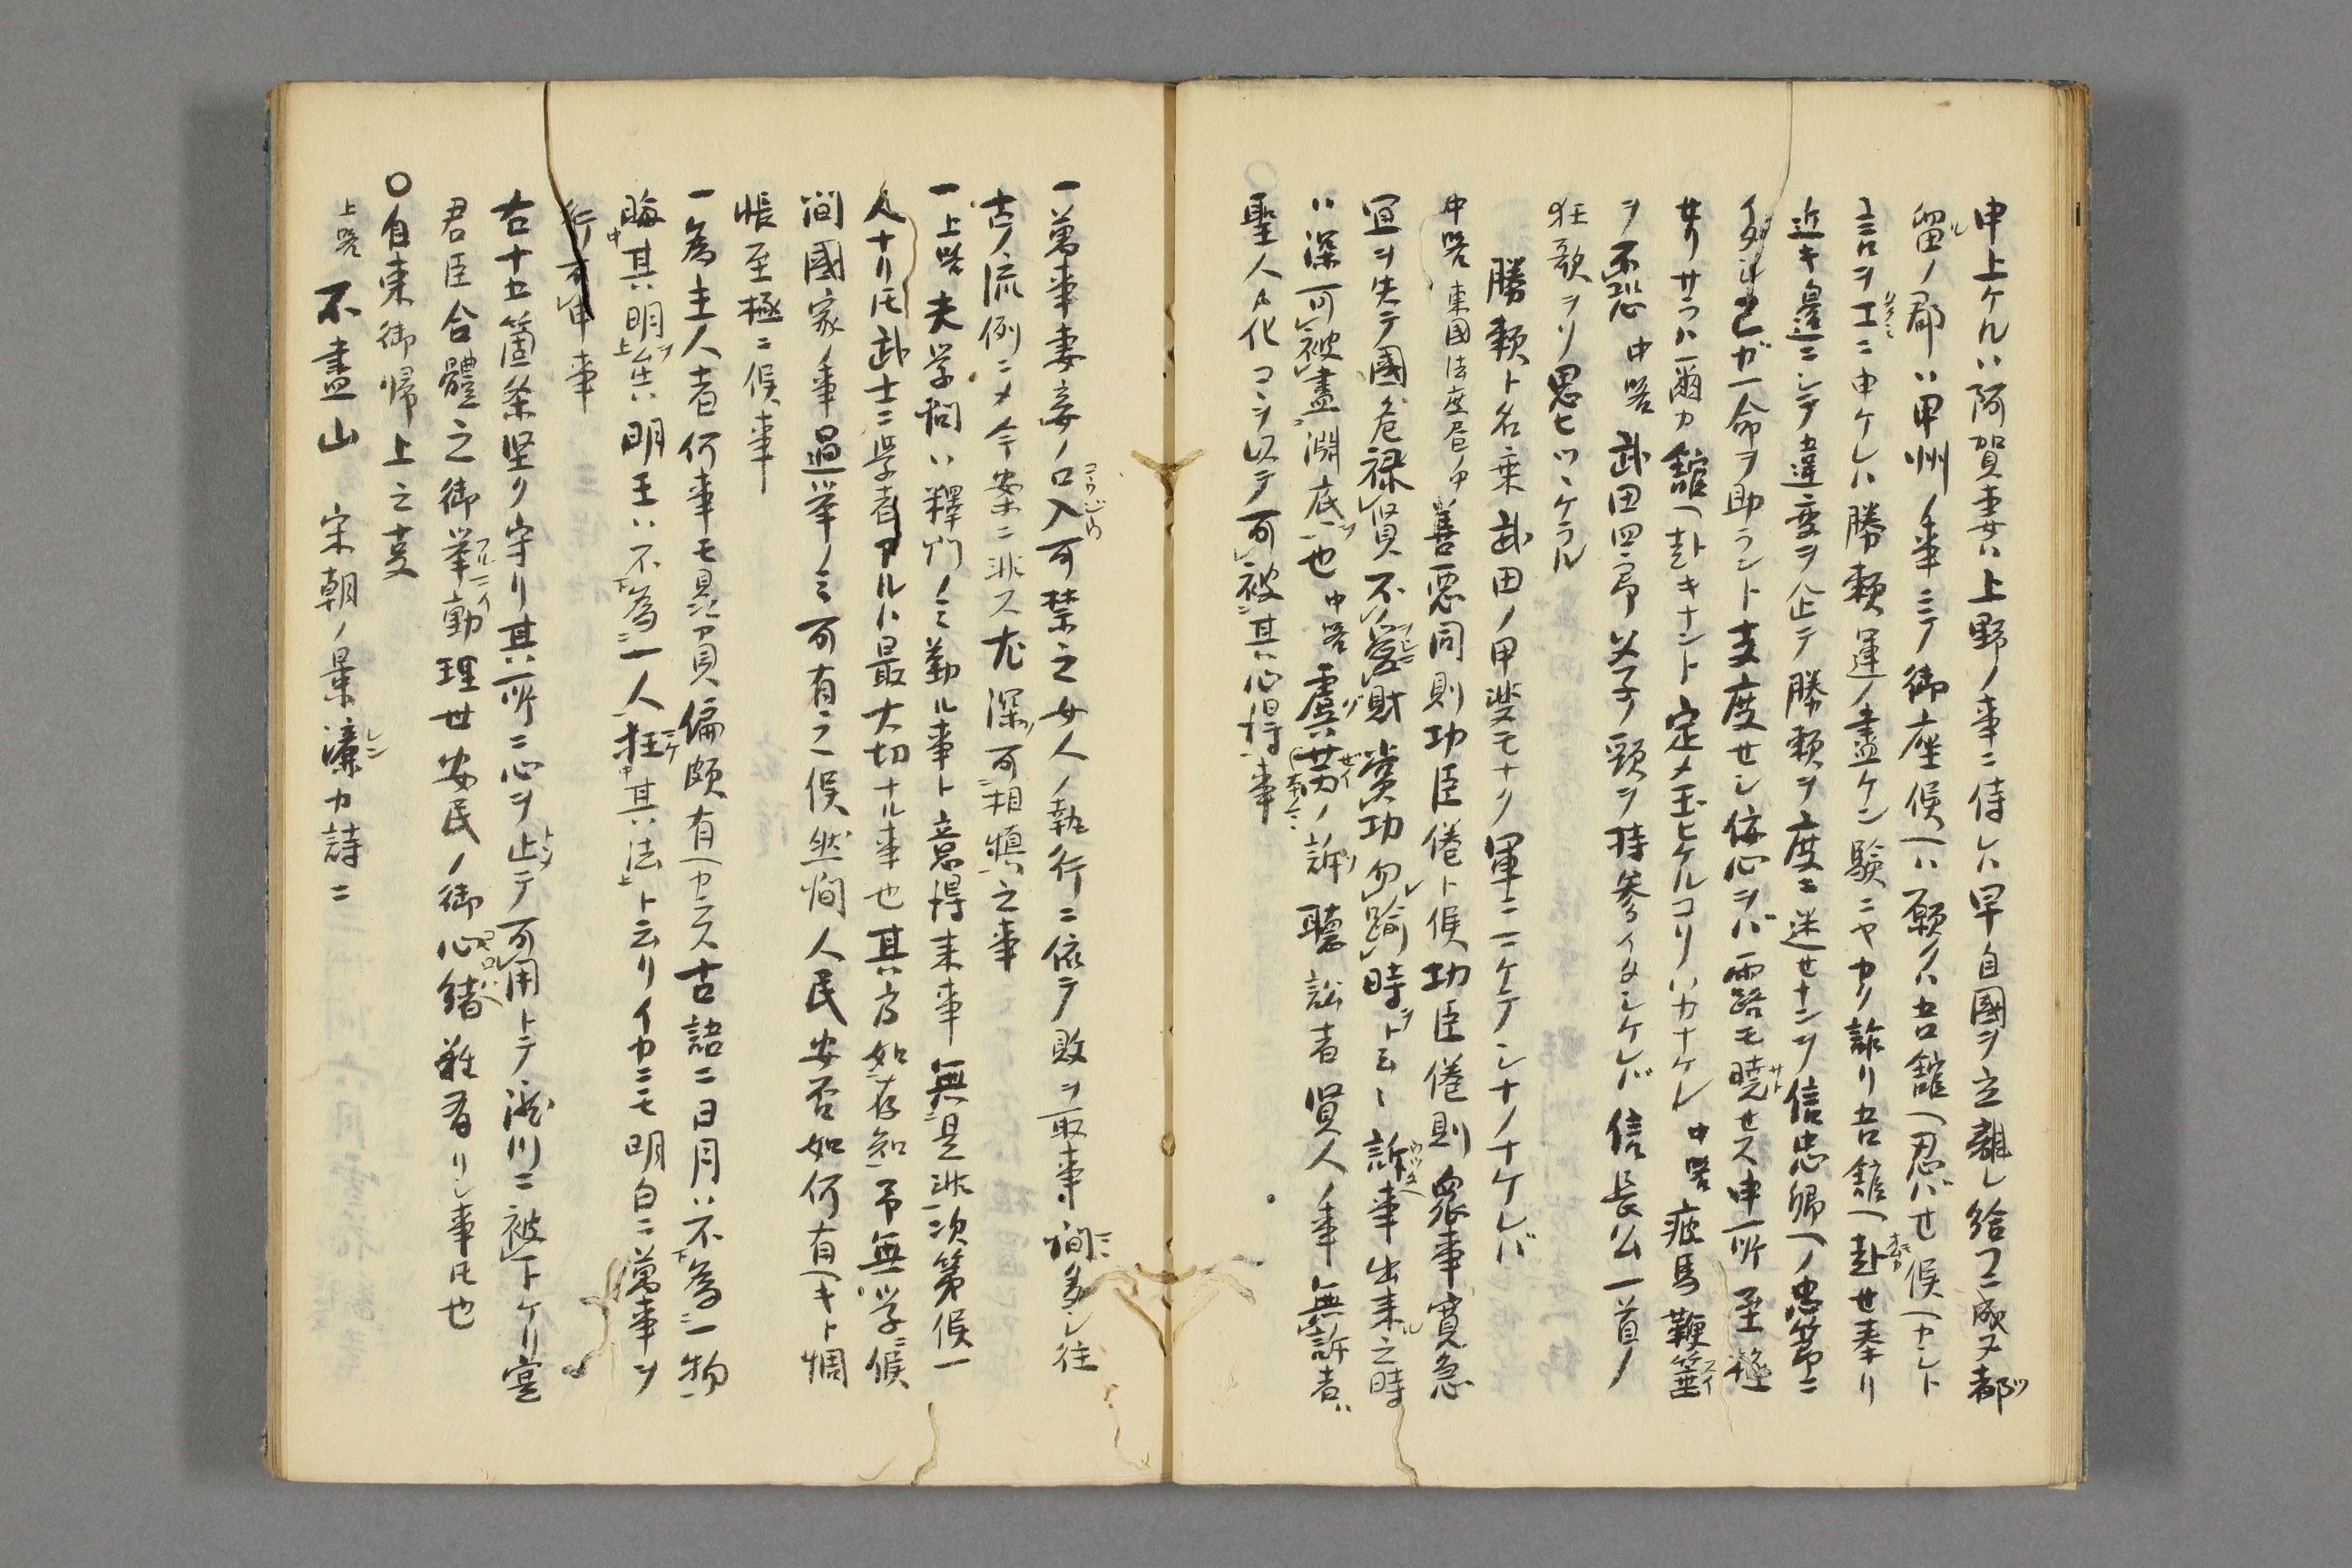 申上ケルハ阿賀妻共ハ上野ノ事ニ侍レハ早自國ヲ立離レ給フニ成ヌ都
留ノ郡ハ甲州ノ事ニテ御座候ヘハ願クハ吾舘ヘ忍バせ候ヘカシト
言ヲ工ニ申ケレハ勝頼運ノ盡ケン験ニヤカク詐リ吾舘ヘ赴せ奉リ
近キ邊ニシテ違変ヲ企テ勝頼ヲ度ニ迷せナシツ信忠卿ヘノ忠節ニ
己ガ一命ヲ助ラント支度せシ侫心ヲバ露モ暁せス申所至極
せリサラハ爾カ舘ヘ赴キナント定メ玉ヒケルコソハカナケレ 中畧 疲馬鞭箠
ヲ不恐 中畧 武田四郎父子頸ヲ持参イタシケレバ信長公一首ノ
狂歌ヲソ思ヒツヽケラル
勝頼ト名乗武田ノ甲斐モナク軍ニニケテシナノナケレバ
中畧 東國法度 善悪同則功臣倦ト候功臣倦則衆事寛急
冝ヲ失テ國危禄賢不愛財賞功勿踰時ト云々訴事出来之時
ハ深可被盡淵底也 中畧 虞芮ノ訴聴訟者賢人ノ事無訴者ハ
聖人ノ化コヽヲ以テ可被其心得事
一萬事妻妾ノ口入可禁之女人ノ執行ニ依テ敗ヲ取事間多シ往
古ノ流例ニメ今案ニ非ス尤深可相慎之事
一 上畧 夫学問ハ釋門ノミ勤ル事ト意得来事無是非次第候一
人ナリ圧武士ニ学者アルハ最大切ナル事也其方如存知予無学ニ候
間國家ノ事過挙ノミ可有之候然間人民安否如何有ヘキト惆
悵至極ニ候事
一為主人者何事モ贔負偏頗有ヘカラス古語ニ日月ハ不為一物
晦其明明王ハ不為一人枉其法ト云リイカニモ明白ニ萬事ヲ
行可申事
右十五箇条堅ク守リ其所ニ心ヲ止テ可用トテ瀧川ニ被下ケリ寔
君臣合體之御挙動理世安民ノ御心緒難有リシ事圧也
〇自東御帰上之事
上畧 不盡山 宋朝ノ景濂カ詩ニ